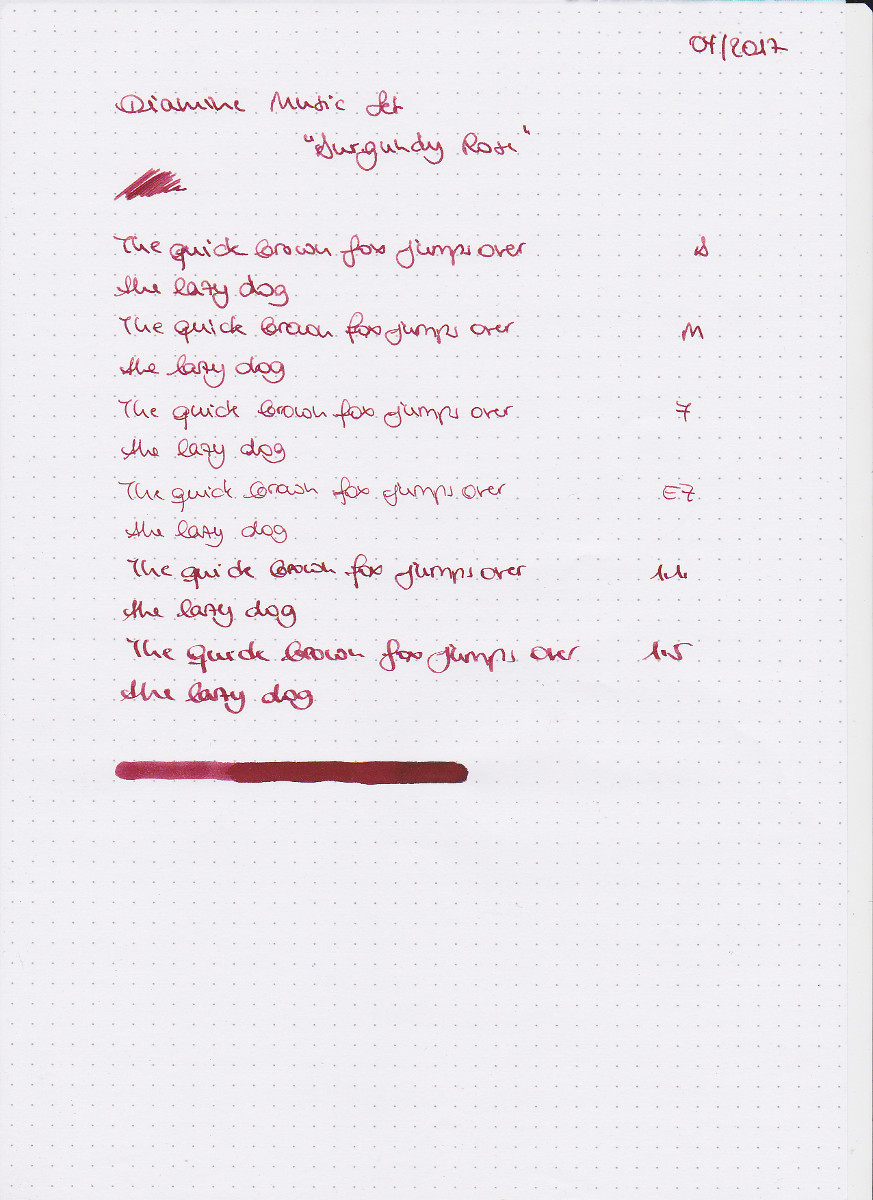 04/2017
Diamine Music Set
"Burgundy Rose"
The quick brown fox jumps over B
the lazy dog
The quick brown fox jumps over M
the lazy dog
The quick brown fox jumps over F
the lazy dog
The quick brown fox jumps over EF
the lazy dog
The quick brown fox jumps over 1.1
the lazy dog
The quick brown fox jumps over 1.5
the lazy dog